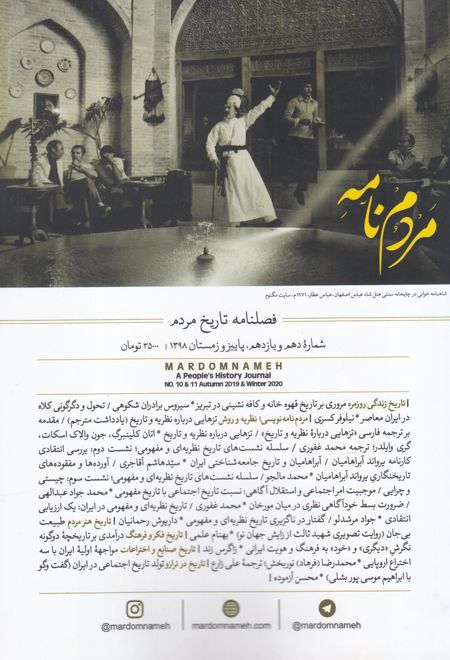 مردم‌نامه
شاهنامه خوانی در چایخانه سنتی هتل شاه عباس اصفهان،عباس عطار، ۱۹۷۱م، سایت مگنوم
فصلنامه تاریخ مردم
شمارهٔ دهم و یازدهم، پاییز و زمستان ۱۳۹۸ | ۳۵۰۰۰ تومان
MARDOMNAMEH
A People's History Journal
NO. 10 & 11 Autumn 2019 & Winter 2020
| تاریخ زندگی روزمره مروری بر تاریخ قهوه خانه و کافه نشینی در تبریز * سیروس برادران شکوهی / تحول و دگرگونی کلاه
در ایران معاصر * نیلوفر کسری | مردم‌نامه‌نویسی؛ نظریه و روش تزهایی درباره نظریه و تاریخ (یادداشت مترجم) / مقدمه
بر ترجمه فارسی «تزهایی دربارهٔ نظریه و تاریخ» / تزهایی درباره نظریه و تاریخ * اتان کلینبرگ، جون والاک اسکات،
گری وایلدر؛ ترجمه محمد غفوری / سلسله نشست‌های تاریخ نظریه‌ای و مفهومی؛ نشست دوم: بررسی انتقادی
کارنامه یرواند آبراهامیان / آبراهامیان و تاریخ جامعه‌شناختی ایران * سیّدهاشم آقاجری / آورده‌ها و مفقوده‌های
تاریخنگاریِ یرواند آبراهامیان * محمد مالجو / سلسله نشست‌های تاریخ نظریه‌ای و مفهومی؛ نشست سوم: چیستی
و چرایی / موجبیت امر اجتماعی و استقلال آگاهی: نسبت تاریخ اجتماعی با تاریخ مفهومی * محمد جواد عبدالهی
/ ضرورت بسط خودآگاهی نظری در میان مورخان * محمد غفوری / تاریخ نظریه‌ای و مفهومی در ایران: یک ارزیابی
انتقادی * جواد مرشدلو / گفتار در ناگزیری تاریخ نظریه‌ای و مفهومی * داریوش رحمانیان | تاریخ هنر مردم طبیعت
بی‌جان (روایت تصویری شهید ثالث از زایش جهان نو) * بهنام علمی | تاریخ فکر و فرهنگ درآمدی بر تاریخچهٔ دوگونه
نگرشِ «دیگری» و «خود» به فرهنگ و هویت ایرانی * زاگرس زند | تاریخ صنایع و اختراعات مواجههٔ اولیهٔ ایران با سه
اختراع اروپایی * محمدرضا (فرهاد) نوربخش؛ ترجمهٔ علی زارع | تاریخ در ترازو تولد تاریخ اجتماعی در ایران (گفت وگو
با ابراهیم موسی پور بشلی) * محسن آزموده |
@mardomnameh
mardomnameh.com
@mardomnameh